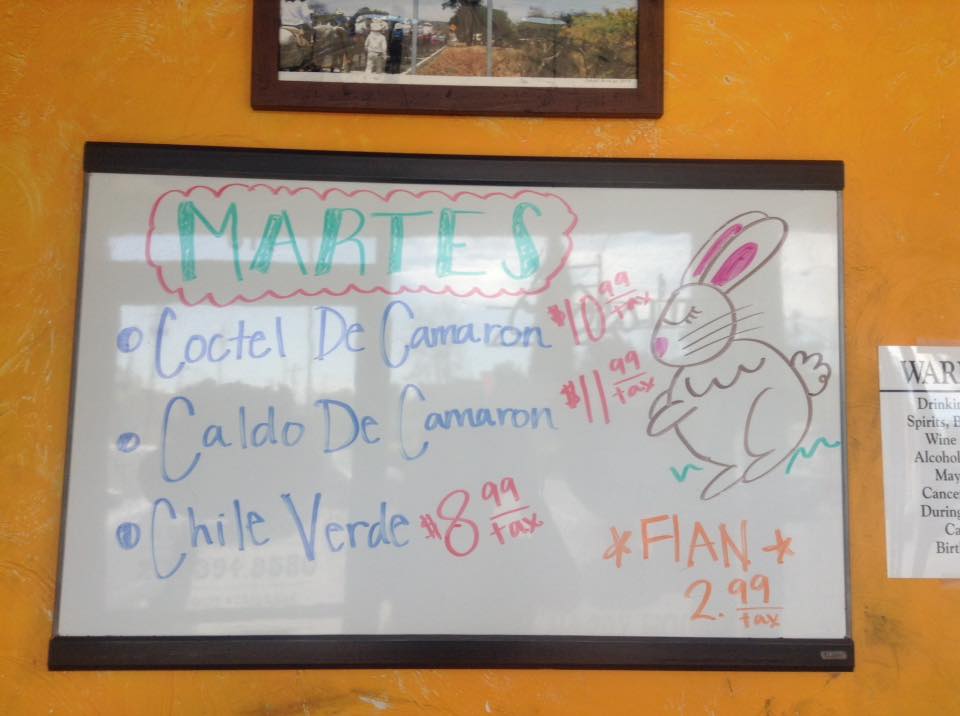 MARTES
• Coctel De Camaron $10 99/tax
• Caldo De Camaron $11 99/tax
• Chile Verde $8 99/tax
*FLAN*
2. 99/tax
WAR
Drinkin
Spirits, B
Wine
Alcohol
May
Cance
During
Ca
Birt